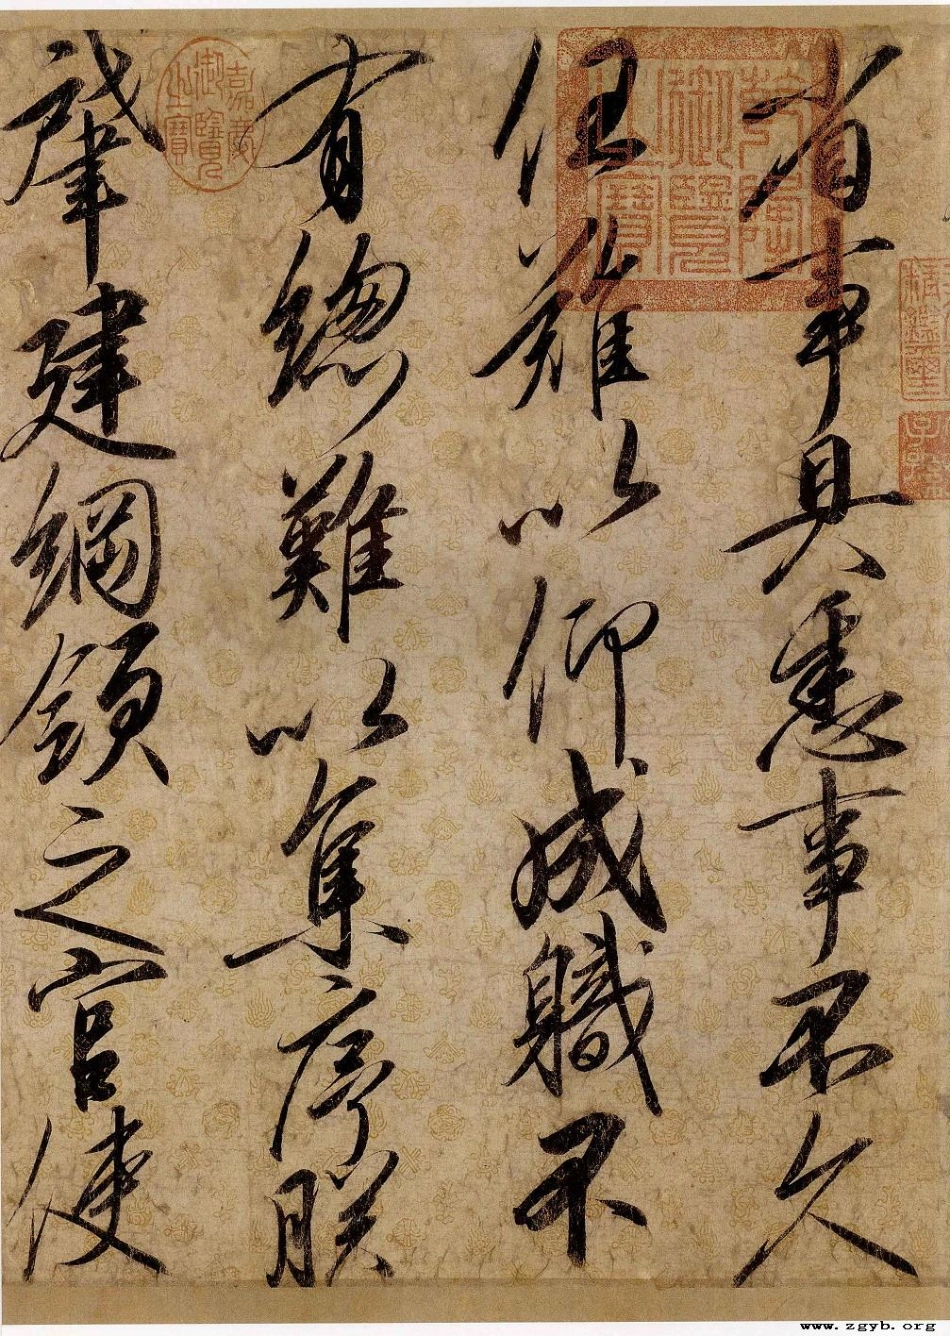 省事具悉事不久
任難以仰成職不
有總難以集序朕
肇建綱領之官使
乾隆御覽之寶
嘉慶御覽之寶
精鑑璽
www.zgyb.org